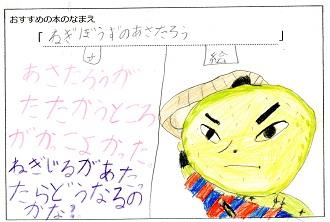 おすすめの本のなまえ
「ねぎぼうずのあさたろう」
絵
あさたろうが
たたかうところ
がかっこよかった。
ねぎじるがあたっ
たらどうなるの
かな?